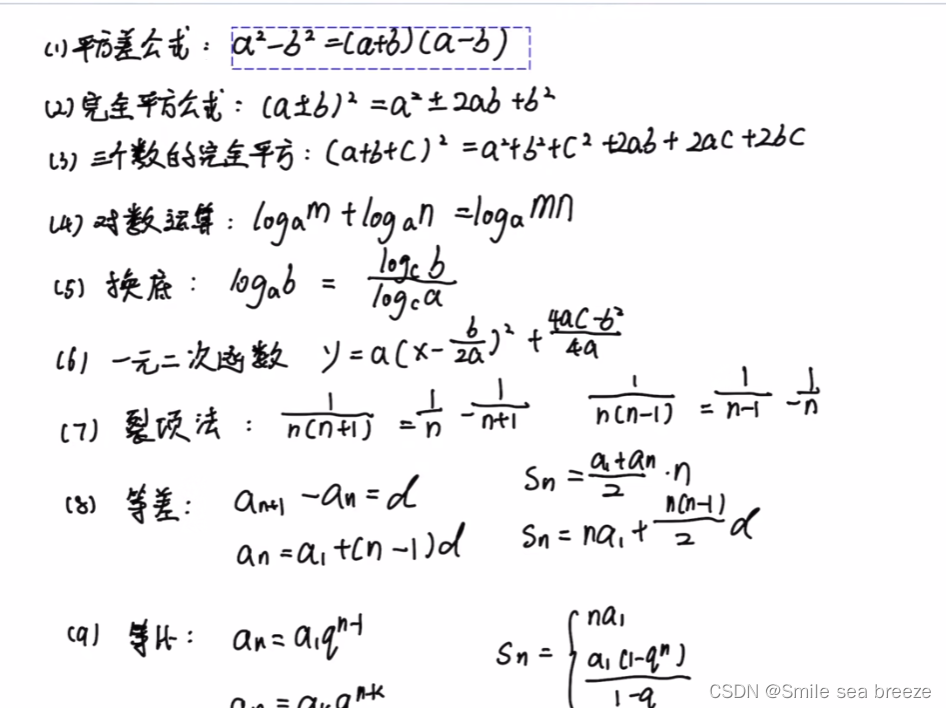 (1) 平方差公式：a²-b²=(a+b)(a-b)
(2) 完全平方公式：(a±b)²=a²±2ab+b²
(3) 三个数的完全平方：(a+b+c)²=a²+b²+c²+2ab+2ac+2bc
(4) 对数运算：logₐm+logₐn=logₐmn
(5) 换底：logₐb = log_c b / log_c a
(6) 一元二次函数 y=a(x-b/2a)²+(4ac-b²)/4a
(7) 裂项法：1/n(n+1) = 1/n - 1/(n+1) 1/n(n-1) = 1/(n-1) - 1/n
(8) 等差：aₙ₊₁-aₙ=d Sₙ=(a₁+aₙ)/2·n
aₙ=a₁+(n-1)d Sₙ=na₁+n(n-1)/2 d
(9) 等比：aₙ=a₁qⁿ⁻¹ Sₙ={ na₁
a₁(1-qⁿ)/(1-q)
aₙ=aₖqⁿ⁻ᵏ
CSDN @Smile sea breeze